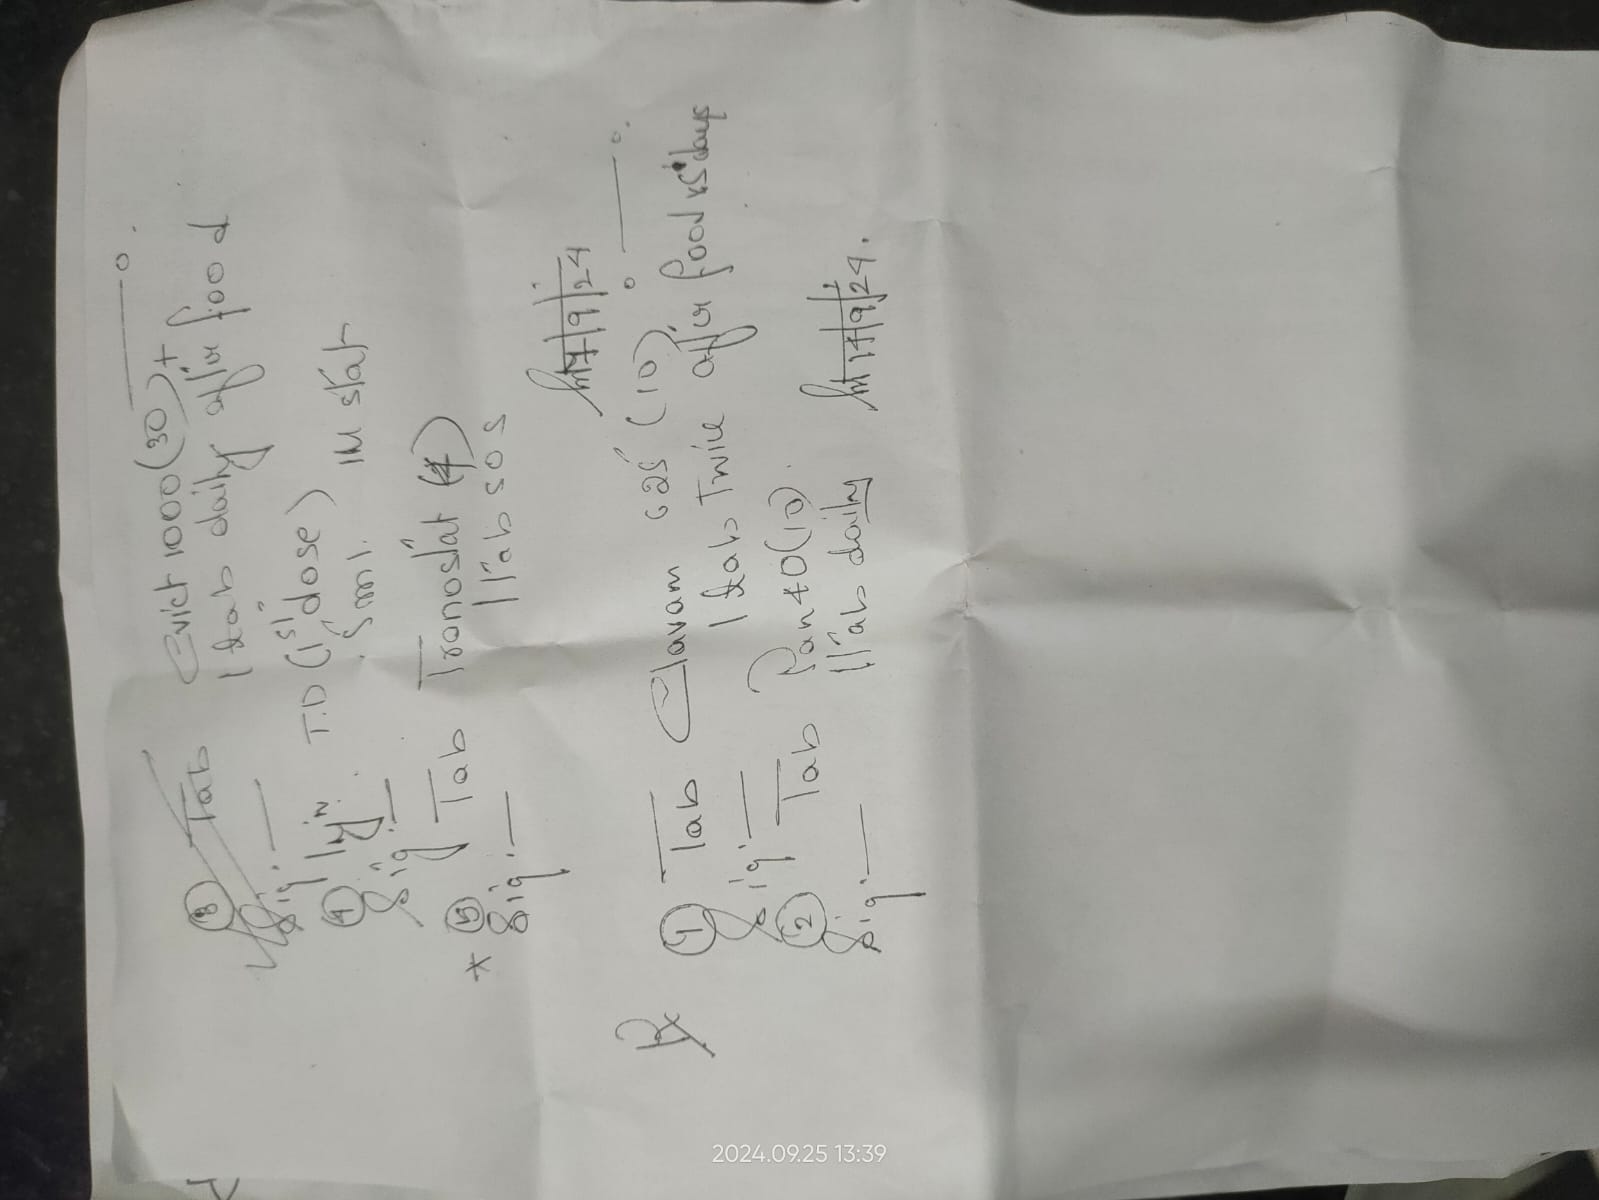 ③ Tab Evict 1000 (30) +
Sig: 1 tab daily after food
④ Inj. T.D (1st dose)
Sig: .5 ml. IM stat
* ⑤ Tab Tronostat (4)
Sig: 1 Tab SOS
17/9/24
Rx
① Tab Clavam 625 (10)
Sig: 1 tab Twice after food x 5 days
② Tab Pan 40 (10).
Sig: 1 Tab daily
17/9/24.
2024.09.25 13:39